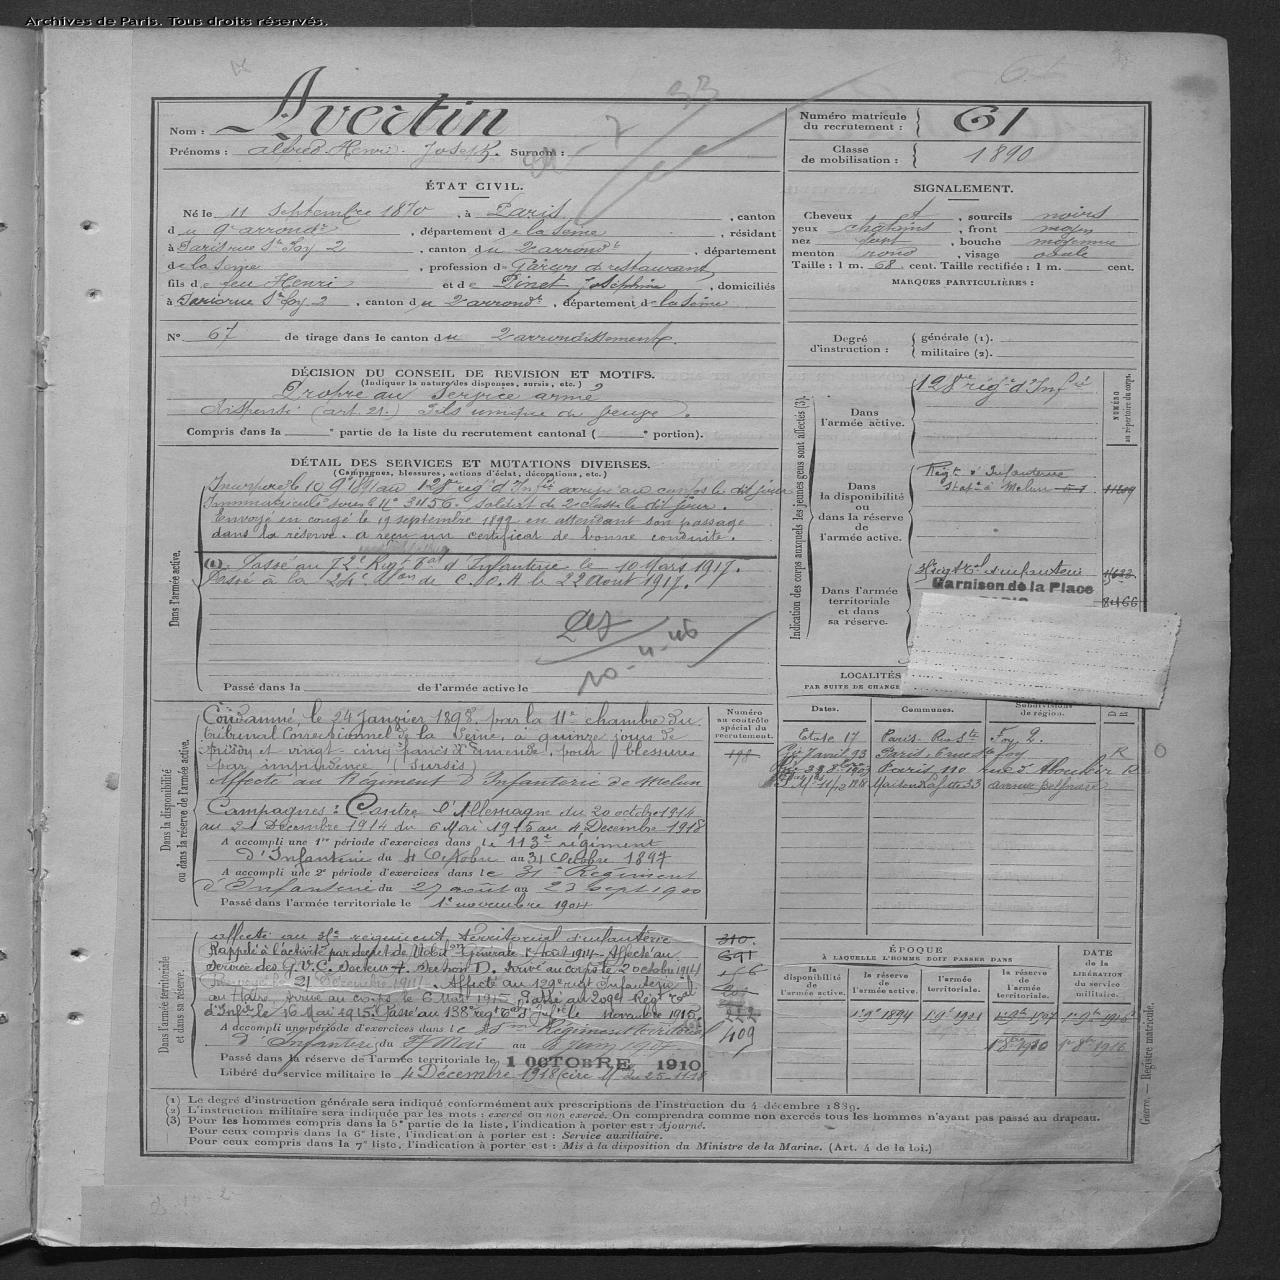 Archives de Paris. Tous droits réservés.
Nom : Avertin
Prénoms : Alfred Henri Joseph. Surnom :
Numéro matricule du recrutement : 61
Classe de mobilisation : 1890
ÉTAT CIVIL.
Né le 11 Septembre 1870, à Paris, canton
du 9e arrondt, département de la Seine, résidant
à Paris rue Ste Foy 2, canton du 2 arrondt, département
de la Seine, profession de Garçon de restaurant
fils de feu Henri et de Pinet Joséphine, domiciliés
à Paris rue Ste Foy 2, canton du 2 arrondt, département de la Seine
No 67 de tirage dans le canton du 2 arrondissement.
SIGNALEMENT.
Cheveux et, sourcils noirs
yeux chatains, front moyen
nez, bouche moyenne
menton rond, visage ovale
Taille : 1 m. 68 cent. Taille rectifiée : 1 m. cent.
MARQUES PARTICULIÈRES :
Degré d'instruction : générale (1).
militaire (2).
DÉCISION DU CONSEIL DE REVISION ET MOTIFS.
(Indiquer la nature des dispenses, sursis, etc.)
Propre au service armé
Dispensé (art. 21.) Fils unique de veuve.
Compris dans la e partie de la liste du recrutement cantonal ( e portion).
DÉTAIL DES SERVICES ET MUTATIONS DIVERSES.
(Campagnes, blessures, actions d'éclat, décorations, etc.)
Dans l'armée active.
Incorporé le 10 9bre 1891 au 128e régt d'Infie arrivé au corps le dit jour
Immatriculé sous le No 3456. Soldat de 2e classe le dit jour.
Envoyé en congé le 19 septembre 1892 en attendant son passage
dans la réserve. a reçu un certificat de bonne conduite.
(1). Passé au 72e Régt tal d'Infanterie le 10 Mars 1917.
Passé à la 24e Son de C.O.A. le 22 Août 1917.
10-4-46
Passé dans la de l'armée active le
Indication des corps auxquels les jeunes gens sont affectés (3).
NUMÉRO au répertoire du corps.
Dans l'armée active.
128me régt d'Infie
Dans la disponibilité ou dans la réserve de l'armée active.
Régt d'Infanterie
Stat. à Melun
11609
Dans l'armée territoriale et dans sa réserve.
Garnison de la Place
8466
LOCALITÉS
PAR SUITE DE CHANGE
Dates.
Communes.
Subdivisions de région.
Paris Rue Ste Foy 2.
7 avril 93 Paris 6 rue Ste Foy R
Paris 110 rue d'Aboukir R
avenue
Dans la disponibilité ou dans la réserve de l'armée active.
Numéro au contrôle spécial du recrutement.
198
Condamné le 24 Janvier 1898 par la 11e chambre du
Tribunal Correctionnel de la Seine, à quinze jours de
prison et vingt-cinq francs d'amende pour blessures
par imprudence (sursis)
Affecté au Régiment d'Infanterie de Melun
Campagnes : Contre l'Allemagne du 20 octobre 1914
au 21 Décembre 1914 du 6 Mai 1915 au 4 Décembre 1918
A accompli une 1re période d'exercices dans le 113e régiment
d'Infanterie du 4 Octobre au 31 Octobre 1897
A accompli une 2e période d'exercices dans le 31e Régiment
d'Infanterie du 27 août au 23 Sept 1900
Passé dans l'armée territoriale le 1er novembre 1904
Dans l'armée territoriale et dans sa réserve.
affecté au régiment territorial d'infanterie
Rappelé à l'activité par décret de Mobilon Générale 1 Août 1914 - Affecté au
Service des G.V.C. Secteur Section D. Arrivé au corps le 20 octobre 1914
21 Décembre 1914. Affecté au 129e régt Infanterie
au Havre, arrivé au corps le 6 Mai 1915. Passé au 20 Régt tal
d'Infie le 16 Mai 1915. Passé au 138e régt tal d'Infie le novembre 1915.
A accompli une période d'exercices dans le Régiment territorial
d'Infanterie du Mai au Juin 1907
Passé dans la réserve de l'armée territoriale le 1 OCTOBRE 1910
Libéré du service militaire le 4 Décembre 1918
310.
691
409
ÉPOQUE
À LAQUELLE L'HOMME DOIT PASSER DANS
la disponibilité de l'armée active.
la réserve de l'armée active.
l'armée territoriale.
la réserve de l'armée territoriale.
DATE DE LA LIBÉRATION du service militaire.
1er 9bre 1894
1er 9bre 1907
(1) Le degré d'instruction générale sera indiqué conformément aux prescriptions de l'instruction du 4 décembre 1889.
(2) L'instruction militaire sera indiquée par les mots : exercé ou non exercé. On comprendra comme non exercés tous les hommes n'ayant pas passé au drapeau.
(3) Pour les hommes compris dans la 5e partie de la liste, l'indication à porter est : Ajourné.
Pour ceux compris dans la 6e liste, l'indication à porter est : Service auxiliaire.
Pour ceux compris dans la 7e liste, l'indication à porter est : Mis à la disposition du Ministre de la Marine. (Art. 4 de la loi.)
Guerre. — Registre matricule.